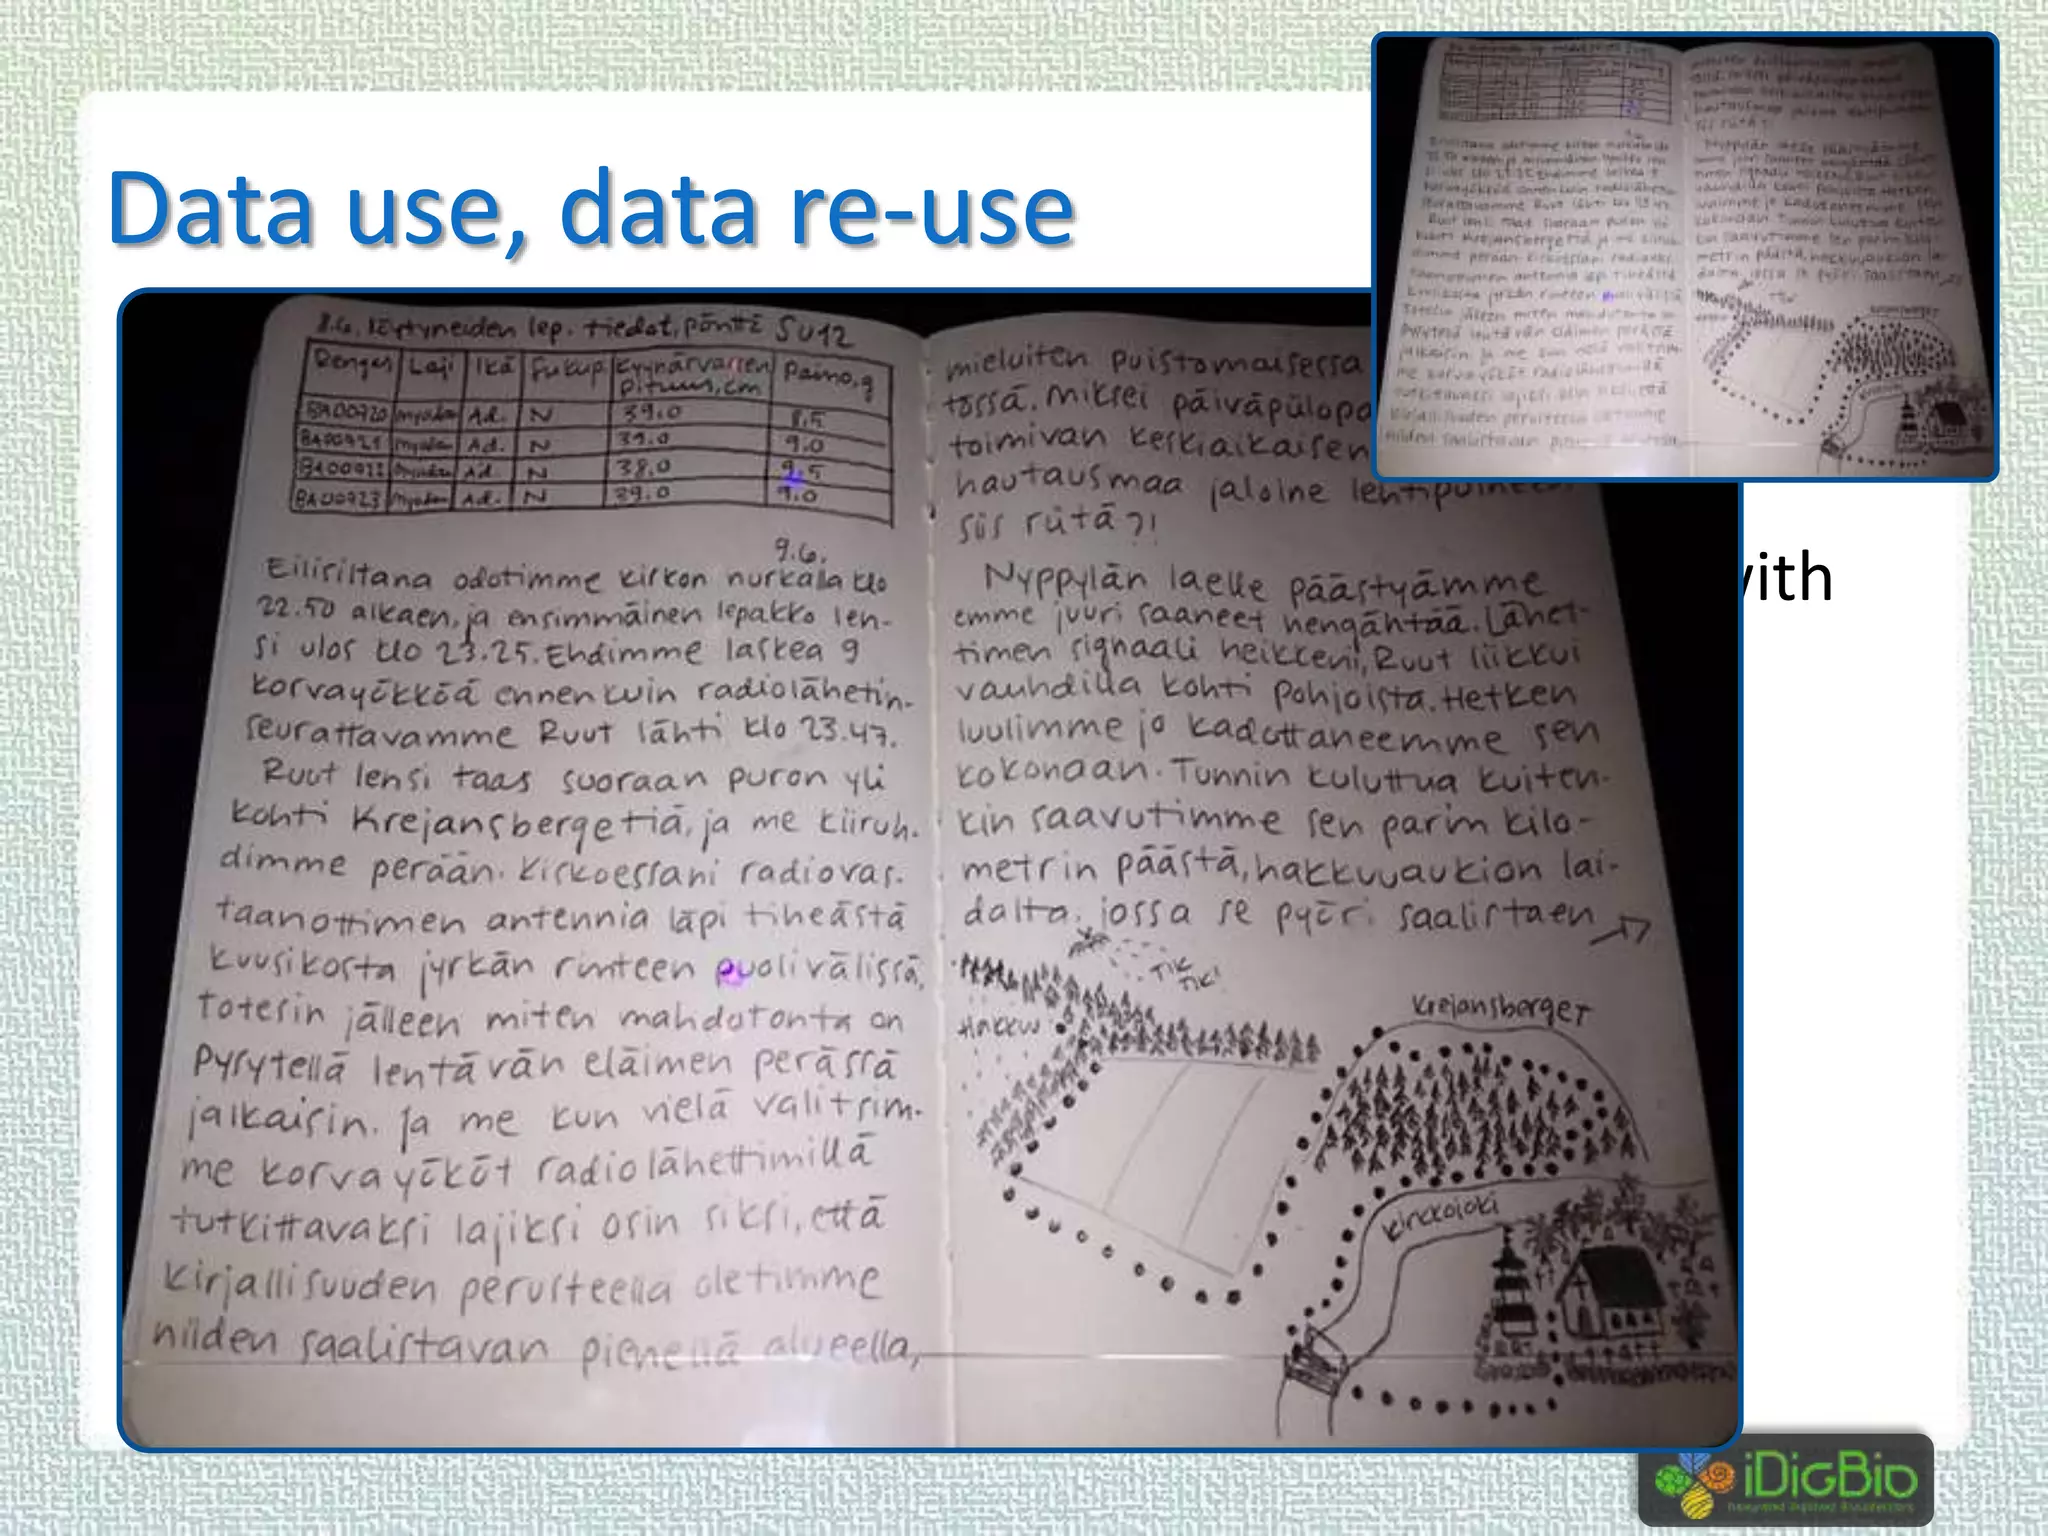 Data use, data re-use
with
8.6. Löytyneiden lep. tiedot, pönttö SU12
Rengas Laji Ikä Sukup. Kyynärvarren pituus, cm Paino, g
BA00920 myodau Ad. N 39.0 8.5
BA00921 myodau Ad. N 39.0 9.0
BA00922 myodau Ad. N 38.0 9.5
BA00923 myodau Ad. N 39.0 9.0
9.6.
Eilisiltana odotimme kirkon nurkalla klo
22.50 alkaen, ja ensimmäinen lepakko len-
si ulos klo 23.25. Ehdimme laskea 9
korvayökköä ennen kuin radiolähetin-
seurattavamme Ruut lähti klo 23.47.
Ruut lensi taas suoraan puron yli
kohti Krejansbergetiä, ja me kiiruh-
dimme perään. Kiskoessani radiovas-
taanottimen antennia läpi tiheästä
kuusikosta jyrkän rinteen puolivälissä,
totesin jälleen miten mahdotonta on
pysytellä lentävän eläimen perässä
jalkaisin. Ja me kun vielä valitsim-
me korvayököt radiolähettimillä
tutkittavaksi lajiksi osin siksi, että
kirjallisuuden perusteella oletimme
niiden saalistavan pienellä alueella,
mieluiten puistomaisessa
tössä. Miksei päiväpiilopa
toimivan keskiaikaisen
hautausmaa jaloine lehtipuineen
siis riitä?!
Nyppylän laelle päästyämme
emme juuri saaneet hengähtää. Lähet-
timen signaali heikkeni, Ruut liikkui
vauhdilla kohti pohjoista. Hetken
luulimme jo kadottaneemme sen
kokonaan. Tunnin kuluttua kuiten-
kin saavutimme sen parin kilo-
metrin päästä, hakkuuaukion lai-
dalta, jossa se pyöri saalistaen
TIK
TIK!
Hakkuu
Krejansberget
Kirkkojoki
iDigBio